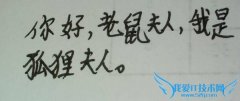 你好，老鼠夫人，我是
狐狸夫人。
我爱IT技术网